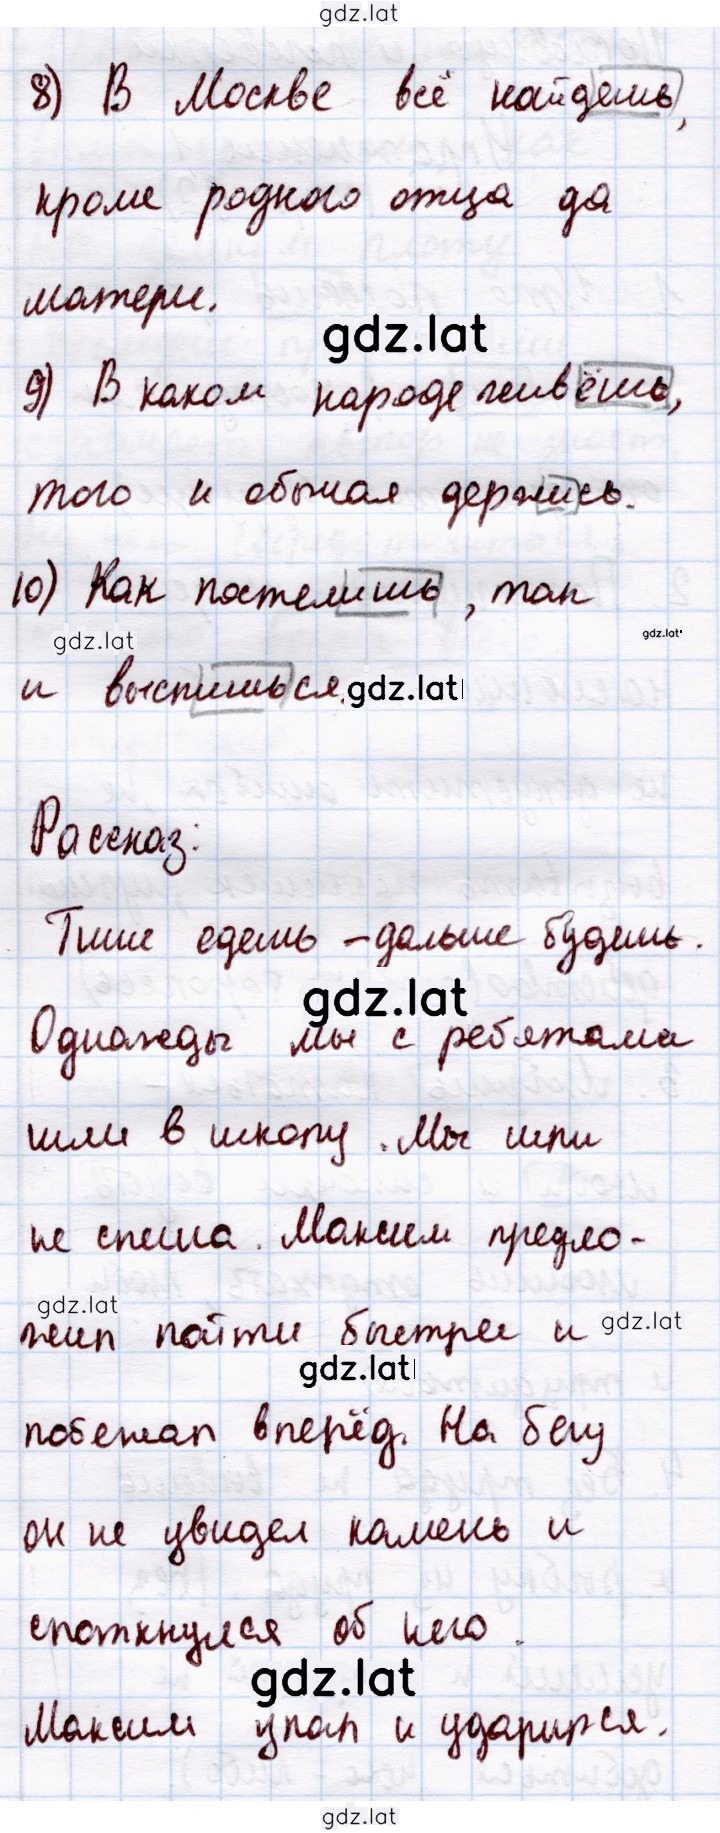 gdz.lat
8) В Москве всё найдешь,
кроме родного отца да
матери.
gdz.lat
9) В каком народе живёшь,
того и обычая держись.
10) Как постелишь, так
gdz.lat
gdz.lat
и выспишься.
gdz.lat
Рассказ:
Тише едешь – дальше будешь.
gdz.lat
Однажды мы с ребятами
шли в школу. Мы шли
не спеша. Максим предло-
gdz.lat
жил пойти быстрее и
gdz.lat
gdz.lat
побежал вперёд. На бегу
он не увидел камень и
споткнулся об него.
gdz.lat
Максим упал и ударился.
gdz.lat